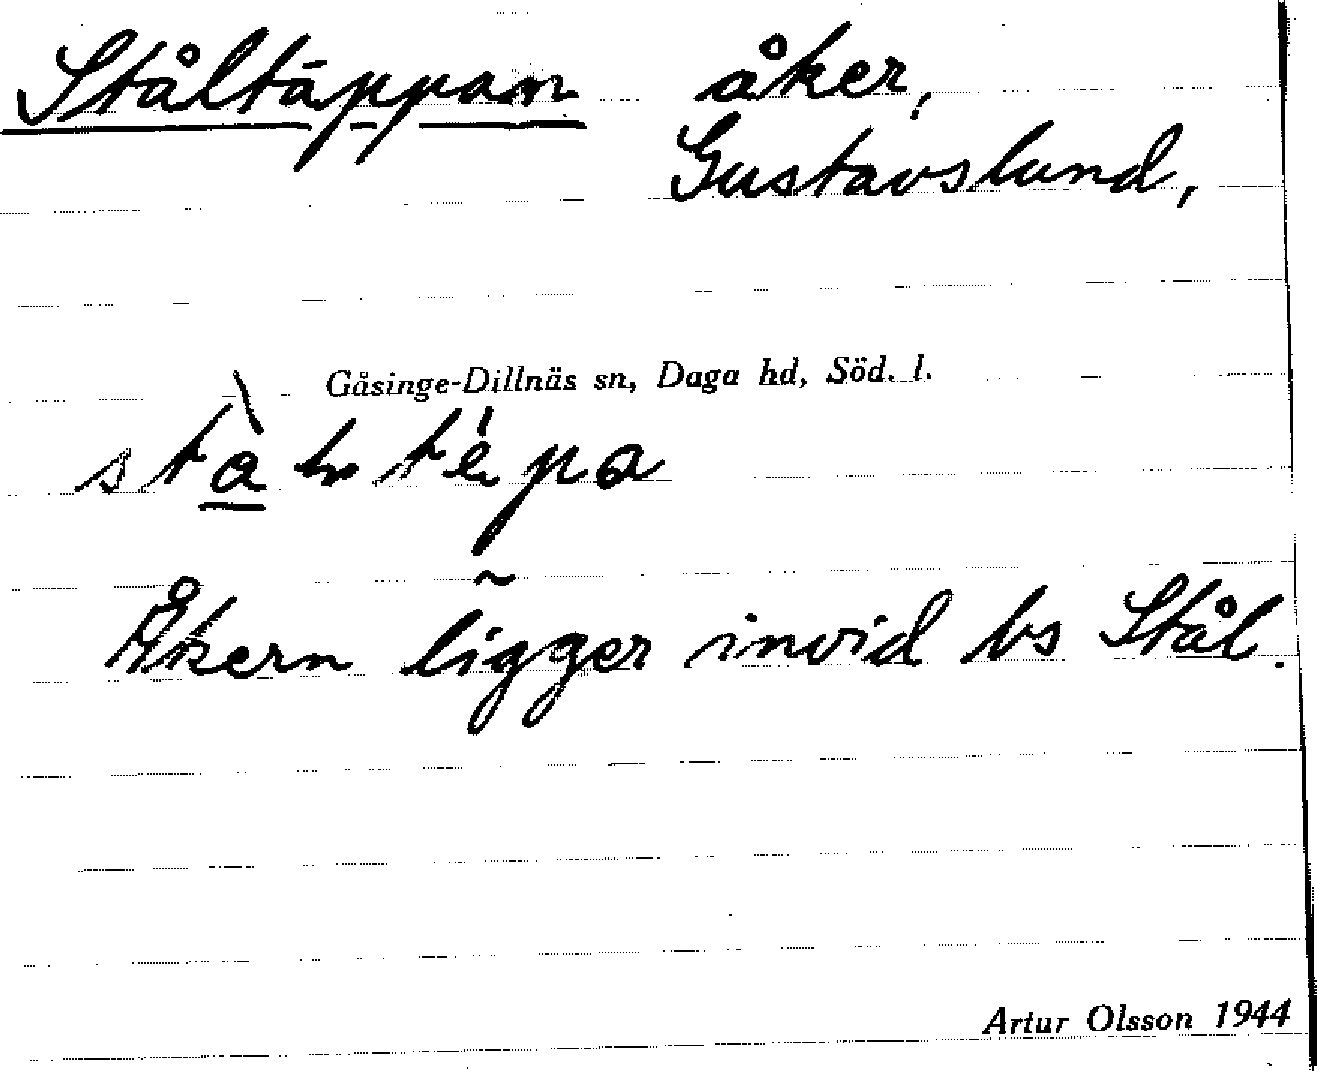 Ståltäppan åker,
Gustavslund,
Gåsinge-Dillnäs sn, Daga hd, Söd. l.
Åkern ligger invid bs Stål.
Artur Olsson 1944